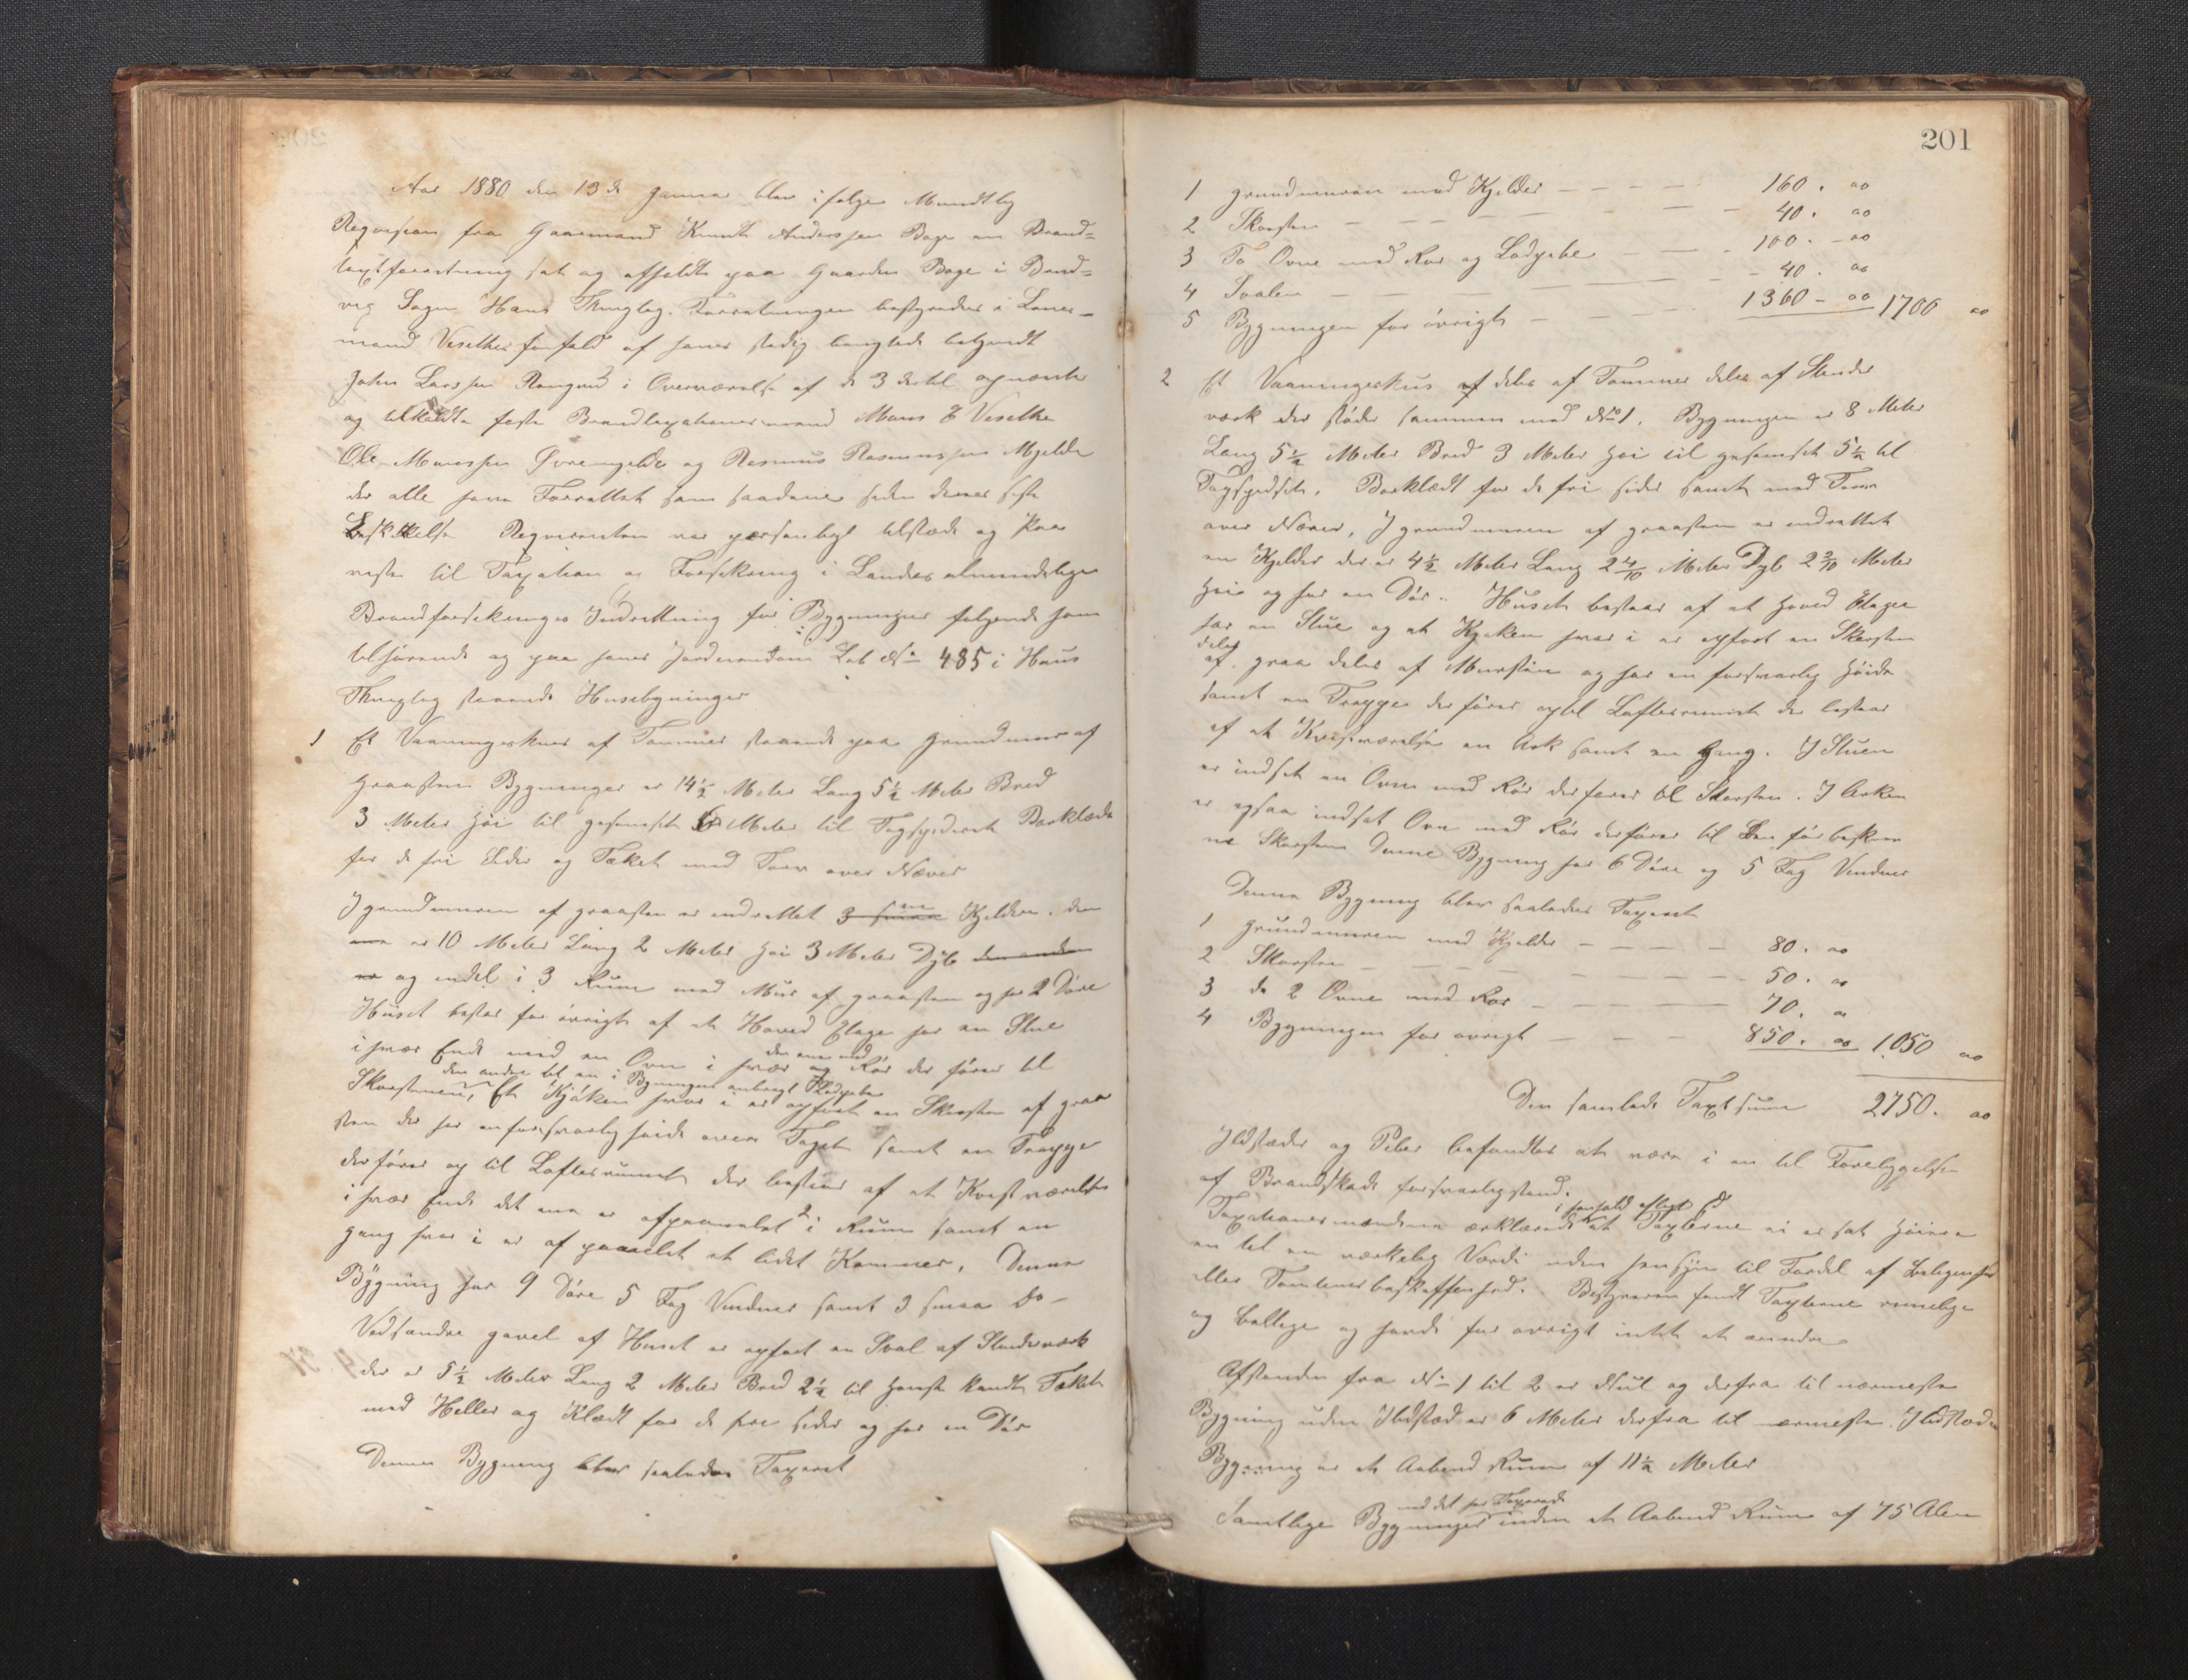 Aar 1880 den 13de Januar blev ifølge Mundtlig
Reqvisision fra Gaarmand Knut Anderssen Boge en Brand-
taxtforretning sat og afholdt paa Gaarden Boge i Bruvig
Sogn Haus Thinglag. Forretningen bestyredes i Lens-
mand Vesethes forfald af hans stedig beviglede betjendt
John Larssen i Overværelse af de 3 dertil opnævnte
og tilkaldte faste Brandtaxationsmænd Mons Vesethe
Ole Monssen Øvremjelde og Rasmus Rasmussen Mjelde
der alle have Forrettet som saadane siden deres siste
Beskikkelse Reqvirenten var persenligt tilstæde og Paa
viste til Taxation og Forsikring i Landets almindelige
Brandforsikrings Indretning for Bygninger følgende ham
tilhørende og paa hans Jordeiendom Løb No 485 i Haus
Thinglag staaende Husebygninger
1 Et Vaaningshus af Tømmer staaende paa Grundmur af
Graasten Bygningen er 14½ Meter Lang 5½ Meter Bred
3 Meter høi til gesemset 6 Meter til Tagspidset Bordklædt
for de fri Sider og Tæket med Torv over Næver
I grundmuren af graasten er indrettet 3 smaa en Kjelder. den
ene er 10 Meter Lang 2 Meter høi 3 Meter Dyb den anden
er og indel i 3 Rum med Mur af graasten og har 2 Døre
Huset bestar for øvrigt af et Hoved Etage har en Stue
i hver Ende med en Ovn i hver den ene med og Rør der fører til
Skorstenen, den anden til en i Bygningen anbragt Ladpibe
Et Kjøken hvor i er opført en Skorsten af graa
sten der har en forsvarlig høide over Taget samt en Trappe
der fører op til Loftesrummet der bestaar af et Kvistværelse
i hver Ende det ene er afpanelet i 2 Rum samt en
gang hvor i er af panelet et lidet Kammer. Denne
Bygning har 9 Døre 5 Fag Vinduer samt 3 smaa Do-
Ved søndre gavel af Huset er opført en Sval af Stenderværk
der er 5½ Meter Lang 2 Meter Bred 2½ til høieste kandt Tækt
med Heller og Klædt for de frie sider og har en Dør
Denne Bygning blev saaledes Taxeret
201
1 grundmuren med Kjelder - - - - 160. 00
2 Skorsten - - - - 40. 00
3 To Ovne med Rør og Ladpibe - - 100. 00
4 Svalen - - - - 40. 00
5 Bygningen for øvrigt - - - - 1360 - 00 1700 00
2 Et Vaaningshus af deles af Tømmer deles af Stender
værk der støder sammen med No 1. Bygningen er 8 Meter
Lang 5½ Meter Bred 3 Meter høi til gesemset 5½ til
Tagspidset. Bordklædt for de fri sider samt med Torv
over Næver, I grundmuren af graasten er indrettet
en Kjelder der er 4½ Meter Lang 2 4/10 Meter Dyb 2 2/10 Meter
høi og har en Dør.. Huset bestaar af et hoved Etage
har en Stue og et Kjøken hvor i er opført en Skorsten
deles af graa deles af Mursten og har en forsvarlig høide
samt en Trappe der fører optil Loftesrummet der bestaar
af et Kvistværelse en Ark samt en Gang. I Stuen
er indsat en Ovn med Rør der fører til Skorsten. I Arken
er ogsaa indsat Ovn med Rør der fører til den før beskrev
ne Skorsten Denne Bygning har 6 Døre og 5 Fag Vinduer
Denne Bygning blev saaledes Taxeret
1 grundmuren med Kjelder - - - - 80. 00
2 Skorsten - - - - 50. 00
3 de 2 Ovne med Rør - - - - 70. 00
4 Bygningen for øvrigt - - - 850. 00 1050 00
Den samlede Taxtsum 2750. 00
Ildstæder og Piber befandtes at være i en til Forebyggelse
af Brandskade forsvarlig stand.
Taxationsmændene erklærede i henhold aflagt Ed at Taxterne ei er sat høiere
en til en virkelig Værdi uden hensyn til Fordel af Beligenhed
eller Tomtens beskaffenhed. Bestyreren fandt Taxterne rimelige
og billige og havde for øvrigt intet at erindre
Afstanden fra No 1 til 2 er Nul og derfra til nærmeste
Bygning uden Ildsted er 6 Meter derfra til nærmeste Ildsteds
Bygning er et Aabend Rum af 11½ Meter
Samtlige Bygninger ved det her Taxerede inden et Aabend Rum af 75 Alen